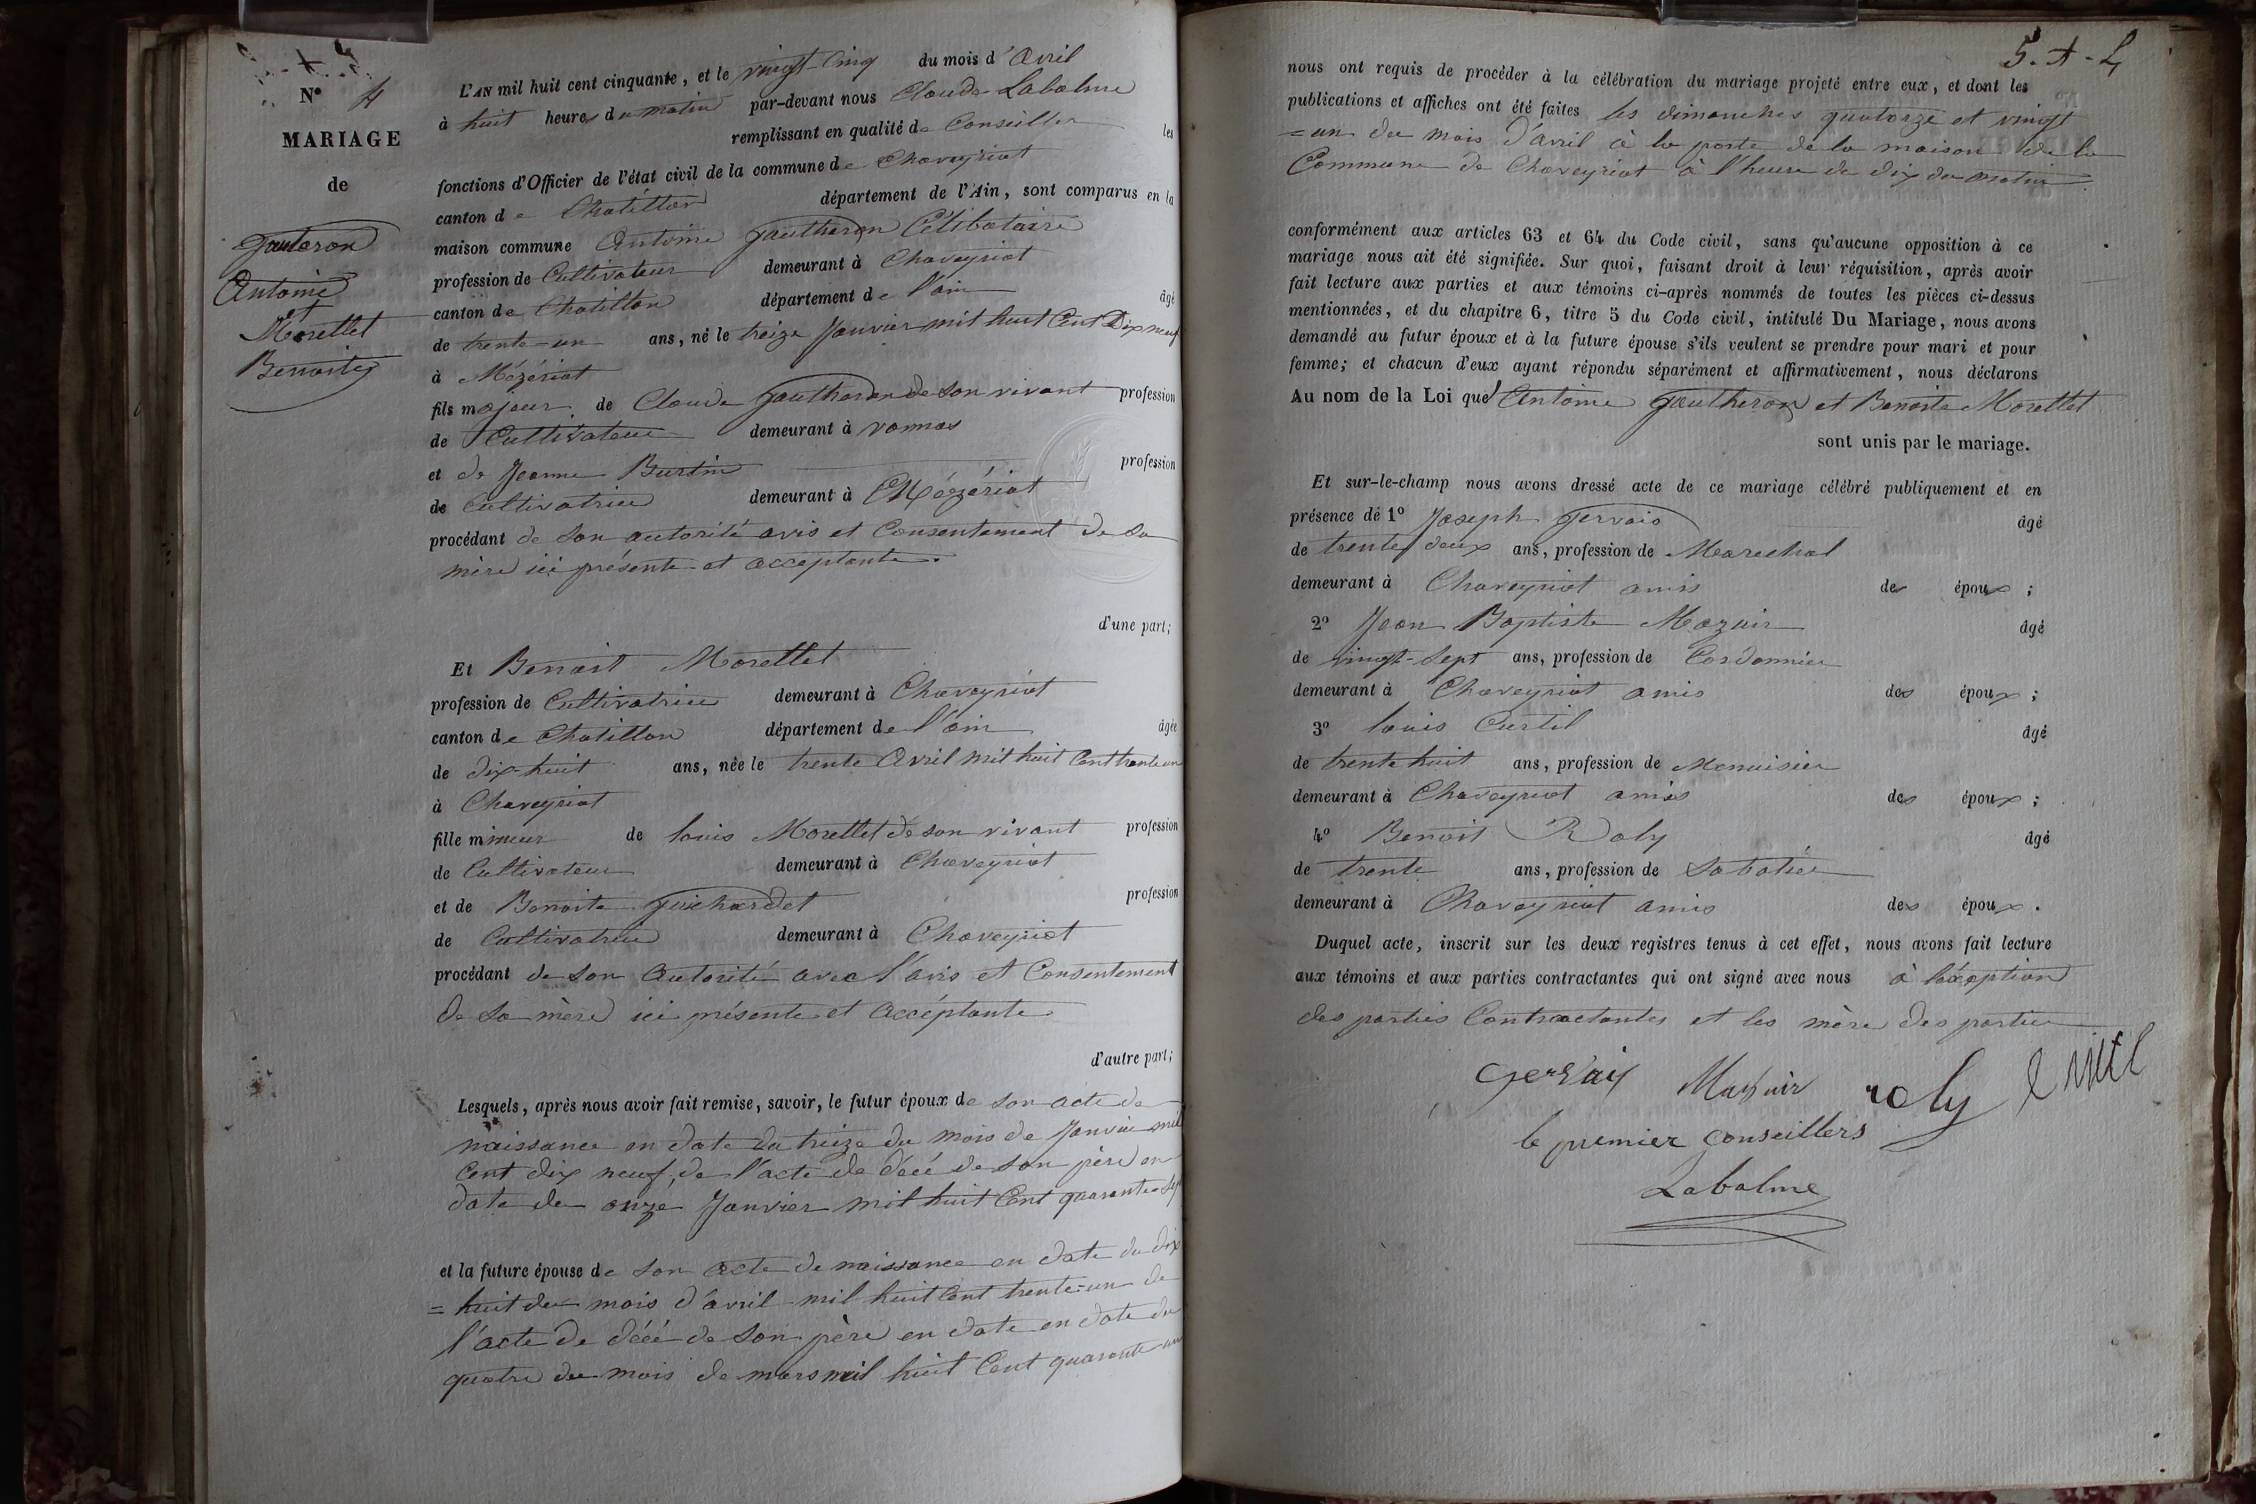 N° 4
MARIAGE
de
Gauteron
Antoine
et
Morellet
Benoite
L'AN mil huit cent cinquante, et le vingt-Cinq du mois d'Avril
à huit heures du matin par-devant nous Claude Labalme
remplissant en qualité de Conseiller les
fonctions d'Officier de l'état civil de la commune de Chaveyriat
canton de Chatillon département de l'Ain, sont comparus en la
maison commune Antoine Gautheron Célibataire
profession de Cultivateur demeurant à Chaveyriat
canton de Chatillon département de l'ain âgé
de trente-un ans, né le treize Janvier mil huit Cent Dix neuf
à Mézériat
fils majeur de Claude Gautheron de son vivant profession
de Cultivateur demeurant à vonnas
et de Jeanne Burtin profession
de Cultivatrice demeurant à Mézériat
procédant de son autorité avis et Consentement de sa
mère ici présente et acceptante.
d'une part;
Et Benoist Morellet
profession de Cultivatrice demeurant à Chaveyriat
canton de Chatillon département de l'ain âgée
de dix-huit ans, née le trente Avril mil huit Cent trente un
à Chaveyriat
fille mineur de louis Morellet de son vivant profession
de Cultivateur demeurant à Chaveyriat
et de Benoite Guichardet profession
de Cultivatrice demeurant à Chaveyriat
procédant de son Autorité avec l'avis et Consentement
de sa mère ici présente et Accéptante
d'autre part;
Lesquels, après nous avoir fait remise, savoir, le futur époux de son acte de
naissance en date du treize du mois de Janvier mil
Cent dix neuf, de l'acte de décé de son père en
date du onze Janvier mil huit Cent quarante-sept
et la future épouse de son acte de naissance en date du dix
= huit du mois d'avril mil huit Cent trente-un de
l'acte de décé de son père en date en date du
quatre du mois de mars mil huit Cent quarante un
5. A - L
nous ont requis de procéder à la célébration du mariage projeté entre eux, et dont les
publications et affiches ont été faites les dimanches quatorze et vingt
= un du mois d'avril à la porte de la maison de la
Commune de Chaveyriat à l'heure de dix du matin.
conformément aux articles 63 et 64 du Code civil, sans qu'aucune opposition à ce
mariage nous ait été signifiée. Sur quoi, faisant droit à leur réquisition, après avoir
fait lecture aux parties et aux témoins ci-après nommés de toutes les pièces ci-dessus
mentionnées, et du chapitre 6, titre 5 du Code civil, intitulé Du Mariage, nous avons
demandé au futur époux et à la future épouse s'ils veulent se prendre pour mari et pour
femme; et chacun d'eux ayant répondu séparément et affirmativement, nous déclarons
Au nom de la Loi que Antoine Gautheron et Benoite Morellet
sont unis par le mariage.
Et sur-le-champ nous avons dressé acte de ce mariage célébré publiquement et en
présence de 1° Joseph Gervais âgé
de trente deux ans, profession de Marechal
demeurant à Chaveyriat amis des époux ;
2° Jean Baptiste Mazuir âgé
de vingt-sept ans, profession de Cordonnier
demeurant à Chaveyriat amis des époux ;
3° louis Curtil âgé
de trente huit ans, profession de Menuisier
demeurant à Chaveyriat amis des époux ;
4° Benoit Roly âgé
de trente ans, profession de Sabotier
demeurant à Chaveyriat amis des époux .
Duquel acte, inscrit sur les deux registres tenus à cet effet, nous avons fait lecture
aux témoins et aux parties contractantes qui ont signé avec nous à léxéption
des parties Contractantes et les mère des partie
Gervais Mazuir roly
le premier Conseillers
Labalme